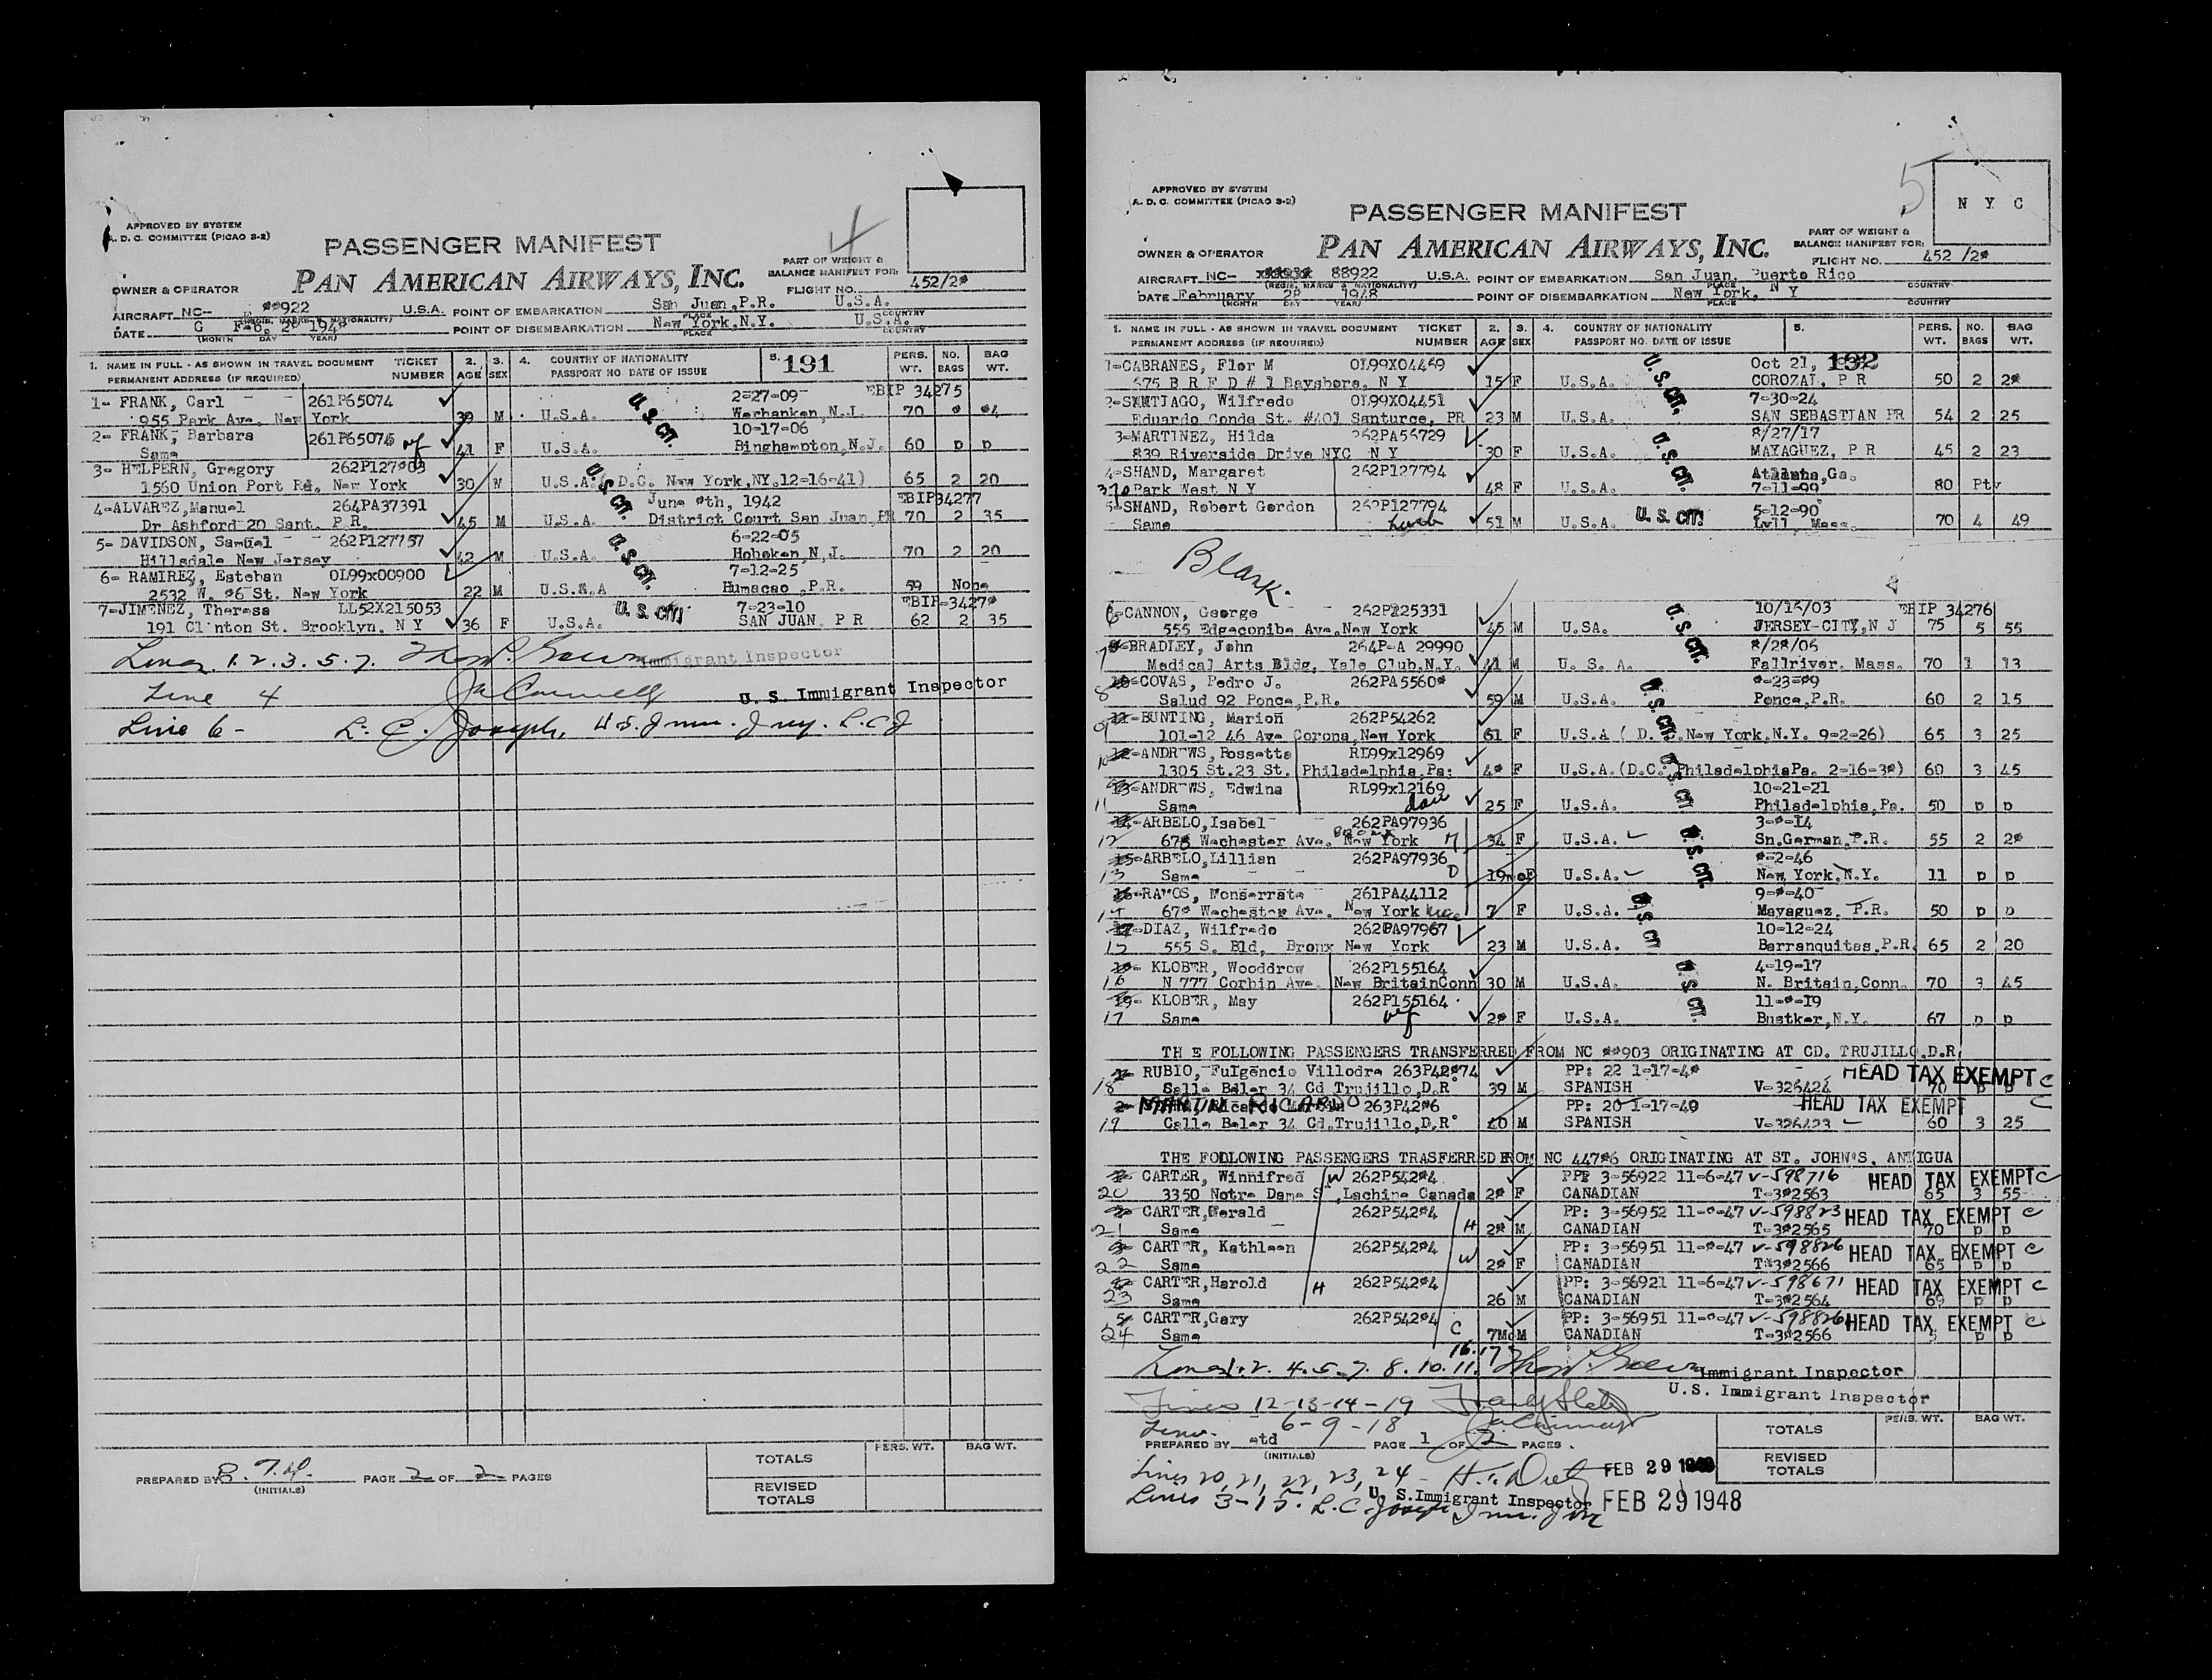 APPROVED BY SYSTEM
A. D. C. COMMITTEE (PICAO S-2)
4
PASSENGER MANIFEST
PART OF WEIGHT &
BALANCE MANIFEST FOR:
OWNER & OPERATOR PAN AMERICAN AIRWAYS, INC.
FLIGHT NO. 452/2
AIRCRAFT NC- 922 U.S.A. POINT OF EMBARKATION San Juan, P.R. U.S.A.
(REGIS. MARKS & NATIONALITY) PLACE COUNTRY
DATE POINT OF DISEMBARKATION New York, N.Y. U.S.A.
(MONTH DAY YEAR) PLACE COUNTRY
1. NAME IN FULL - AS SHOWN IN TRAVEL DOCUMENT TICKET 2. 3. 4. COUNTRY OF NATIONALITY 5. 191 PERS. NO. BAG
PERMANENT ADDRESS (IF REQUIRED) NUMBER AGE SEX PASSPORT NO. DATE OF ISSUE WT. BAGS WT.
1- FRANK, Carl 261P65074 2-27-09 EBIP 34275
955 Park Ave. New York 39 M U.S.A. U.S. CIT. Wechanken, N.J. 70
2- FRANK, Barbara 261P65075 wf 10-17-06
Same 41 F U.S.A. Binghampton, N.J. 60 p p
3- HELPERN, Gregory 262P127
1560 Union Port Rd. New York 30 M U.S.A. (D.C. New York, NY. 12-16-41) U.S. CIT. 65 2 20
4-ALVAREZ, Manuel 264PA37391 June 8th, 1942 EBIP34277
Dr Ashford 20 Sant. P.R. 45 M U.S.A. District Court San Juan PR 70 2 35
5- DAVIDSON, Samuel 262P127757 6-22-05
Hillsdale New Jersey 42 M U.S.A. Hoboken, N.J. 70 2 20
6- RAMIREZ, Esteban OL99x00900 U.S. CIT. 7-12-25
2532 W. 86 St. New York 22 M Humacao, P.R. 59 None
7-JIMENEZ, Theresa LL52X215053 7-23-10
191 Clinton St. Brooklyn, N Y 36 F U.S.A. U.S. CIT. SAN JUAN, P R 62 2 35
Lines. 1. 2. 3. 5. 7. Immigrant Inspector
Line 4 U. S. Immigrant Inspector
Line 6- L. C. Joseph, U.S. Imm. Insp. L.C.J
TOTALS PERS. WT. BAG WT.
PREPARED BY PAGE 2 OF 2 PAGES
(INITIALS)
REVISED
TOTALS
APPROVED BY SYSTEM
A. D. C. COMMITTEE (PICAO S-2)
5
N Y C
PASSENGER MANIFEST
PART OF WEIGHT &
BALANCE MANIFEST FOR:
OWNER & OPERATOR PAN AMERICAN AIRWAYS, INC.
FLIGHT NO. 452 /28
AIRCRAFT NC- 88922 U.S.A. POINT OF EMBARKATION San Juan, Puerto Rico
(REGIS. MARKS & NATIONALITY) PLACE COUNTRY
DATE February 28 1948 POINT OF DISEMBARKATION New York, N Y
(MONTH DAY YEAR) PLACE COUNTRY
1. NAME IN FULL - AS SHOWN IN TRAVEL DOCUMENT TICKET 2. 3. 4. COUNTRY OF NATIONALITY 5. PERS. NO. BAG
PERMANENT ADDRESS (IF REQUIRED) NUMBER AGE SEX PASSPORT NO. DATE OF ISSUE WT. BAGS WT.
1-CABRANES, Flor M OL99X04469 Oct 21, 192
675 B R F D # 1 Bayshore, N Y 15 F U.S.A. U.S. CIT. COROZAL, P R 50 2 28
2-SANTIAGO, Wilfredo OL99X04451 7-30-24
Eduardo Conde St. #401 Santurce, PR 23 M U.S.A. SAN SEBASTIAN PR 54 2 25
3-MARTINEZ, Hilda 262PA56729 8/27/17
839 Riverside Drive NYC N Y 30 F U.S.A. U.S. CIT. MAYAGUEZ, P R 45 2 23
4-SHAND, Margaret 262P127794 Atlanta, Ga.
370 Park West N Y 48 F U.S.A. 7-11-99 80 Pty
5-SHAND, Robert Gordon 262P127794 5-12-90
Same husb 51 M U.S.A. U.S. CIT. Lyll, Mass. 70 4 49
Blank.
6-CANNON, George 262P225331 10/16/03 EBIP 34276
555 Edgeconibe Ave. New York 45 M U.SA. U.S. CIT. JERSEY-CITY, N J 75 5 55
7 BRADLEY, John 264P-A 29990 8/28/06
Medical Arts Bldg, Yale Club, N.Y. 41 M U. S. A. Fallriver, Mass. 70 1 13
8 COVAS, Pedro J. 262PA5560
Salud 92 Ponce, P.R. 59 M U.S.A. U.S. CIT. Ponce, P.R. 60 2 15
9 BUNTING, Marion 262P54262
101-12 46 Ave Corona, New York 61 F U.S.A ( D. C. New York, N.Y. 9-2-26) 65 3 25
10 ANDREWS, Rossetta RL99x12969
1305 St. 23 St. Philadelphia, Pa. 48 F U.S.A. (D.C. Philadelphia Pa. 2-16-38) 60 3 45
11 ANDREWS, Edwina RL99x12169 10-21-21
Same dau 25 F U.S.A. U.S. CIT Philadelphia, Pa. 50 p p
12 ARBELO, Isabel 262PA97936 3-8-14
678 Wechester Ave. Bronx New York M 34 F U.S.A. U.S. CIT. Sn. German, P.R. 55 2 28
13 ARBELO, Lillian 262PA97936 8-2-46
Same D 19mo F U.S.A. New York, N.Y. 11 p p
14 RAMOS, Monserrate 261PA44112 9-8-40
678 Wechester Ave. New York niece 7 F U.S.A. U.S. CIT Mayaguez, P.R. 50 p p
15 DIAZ, Wilfredo 262PA97967 10-12-24
555 S. Bld, Bronx New York 23 M U.S.A. Barranquitas, P.R. 65 2 20
16 KLOBER, Wooddrow 262P155164 4-19-17
N 777 Corbin Ave. New Britain Conn 30 M U.S.A. U.S. CIT. N. Britain, Conn. 70 3 45
17 KLOBER, May 262P155164 11-8-19
Same wf 28 F U.S.A. Bustker, N.Y. 67 p p
TH E FOLLOWING PASSENGERS TRANSFERRED FROM NC 88903 ORIGINATING AT CD. TRUJILLO, D.R.
18 RUBIO, Fulgencio Villodre 263P42874 PP: 22 1-17-48 HEAD TAX EXEMPT C
Salle Beler 34 Cd Trujillo, D.R. 39 M SPANISH V-326424 70 p p
19 MARTIN RICARDO 263P4286 PP: 20 1-17-40 HEAD TAX EXEMPT C
Calle Beler 34 Cd. Trujillo, D.R. 40 M SPANISH V-326423 60 3 25
THE FOLLOWING PASSENGERS TRASFERRED FROM NC 44786 ORIGINATING AT ST. JOHN'S, ANTIGUA
20 CARTER, Winnifred W 262P54284 PP: 3-56922 11-6-47 V-598716 HEAD TAX EXEMPT C
3350 Notre Dame St, Lachine Canada 28 F CANADIAN T-382563 65 3 55
21 CARTER, Gerald 262P54284 PP: 3-56952 11-8-47 V-598823 HEAD TAX EXEMPT C
Same H 28 M CANADIAN T-382565 70 p p
22 CARTER, Kathleen 262P54284 PP: 3-56951 11-8-47 V-598826 HEAD TAX EXEMPT C
Same W 28 F CANADIAN T-382566 65 p p
23 CARTER, Harold H 262P54284 PP: 3-56921 11-6-47 V-598671 HEAD TAX EXEMPT C
Same 26 M CANADIAN T-382564 69 p p
24 CARTER, Gary 262P54284 PP: 3-56951 11-8-47 V-598826 HEAD TAX EXEMPT C
Same C 7Mo M CANADIAN T-382566 5 p p
Lines 1. 2. 4. 5. 7. 8. 10. 11. 16. 17 Immigrant Inspector
U.S. Immigrant Inspector
Lines 12-13-14-19
Lines. 6-9-18
PREPARED BY etd PAGE 1 OF 2 PAGES.
(INITIALS)
TOTALS PERS. WT. BAG WT.
REVISED
TOTALS
Lines 20, 21, 22, 23, 24 - FEB 29 1948
U. S. Immigrant Inspector FEB 29 1948
Lines 3-15. L.C. Joseph Imm. Insp